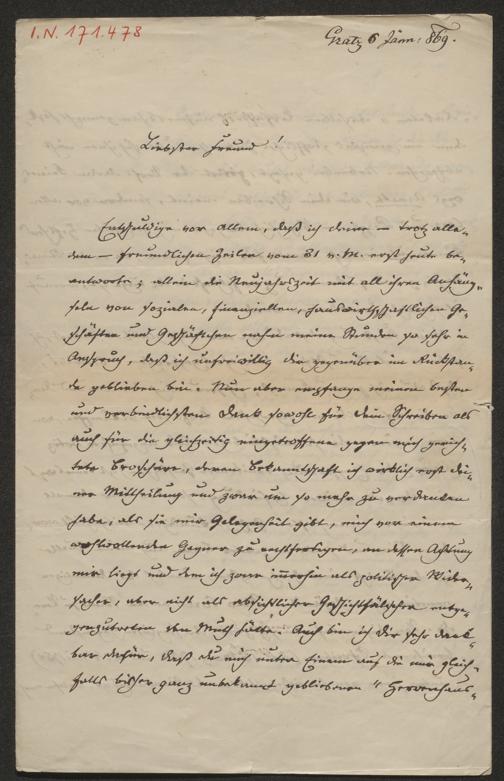 I.N. 171.478
Gratz 6 Jänn: 869.
Liebster Freund!
Entschuldige vor Allem, daß ich deine – trotz alle-
dem – freundlichen Zeilen vom 31 v. M. erst heute be-
antworte; allein die Neujahrszeit mit all ihren Anhäng-
seln von sozialen, finanziellen, hauswirthschaftlichen Ge-
schäften und Geschäftchen nahm meine Stunden so sehr in
Anspruch, daß ich unfreiwillig dir gegenüber im Rückstan-
de geblieben bin. Nun aber empfange meinen besten
und verbindlichsten Dank sowohl für dein Schreiben als
auch für die gleichzeitig eingetroffene gegen mich gerich-
tete Broschüre, deren Bekanntschaft ich wirklich erst dei-
ner Mittheilung und zwar um so mehr zu verdanken
habe, als sie mir Gelegenheit gibt, mich vor einem
wohlwollenden Gegner zu rechtfertigen, an dessen Achtung
mir liegt und dem ich zwar immerhin als politischer Wider-
sacher, aber nicht als absichtlicher Geschichtsfälscher entge-
genzutreten den Muth hätte. Auch bin ich dir sehr dank-
bar dafür, daß du mich unter Einem auf die mir gleich-
falls bisher ganz unbekannt gebliebenen "Herrenhaus-